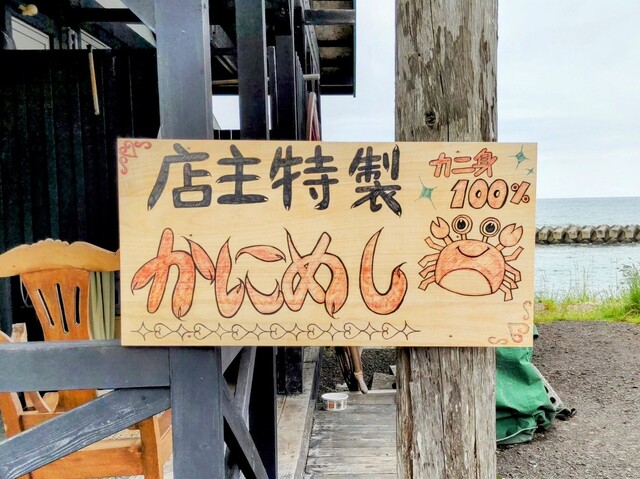 店主特製
カニ身
100%
かにめし